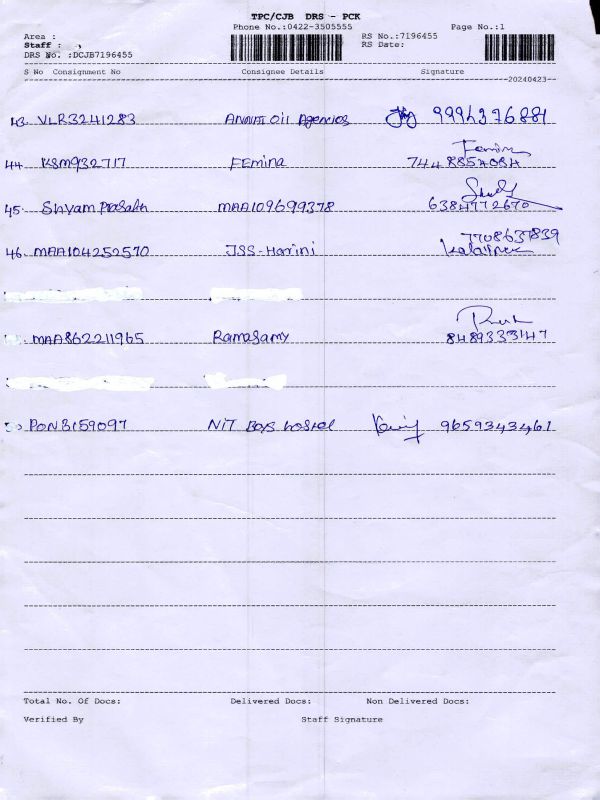 TPC/CJB DRS - PCK
Phone No.:0422-3505555 Page No.:1
Area :
Staff :
RS No.:7196455
DRS No. :DCJB7196455
RS Date:
S No Consignment No Consignee Details Signature
20240423
43. VLR3241283 Annai Oil Agencies 9994376881
44. KSM932717 Femina Femina
7448857084
45. Shyam Prasath MAA109699378 6384772670
46. MAA104252570 JSS-Harini 7708637839
MAA862211965 Ramasamy 8489333147
PON8159097 NIT Boys hostel 9659343461
Total No. Of Docs: Delivered Docs: Non Delivered Docs:
Verified By Staff Signature